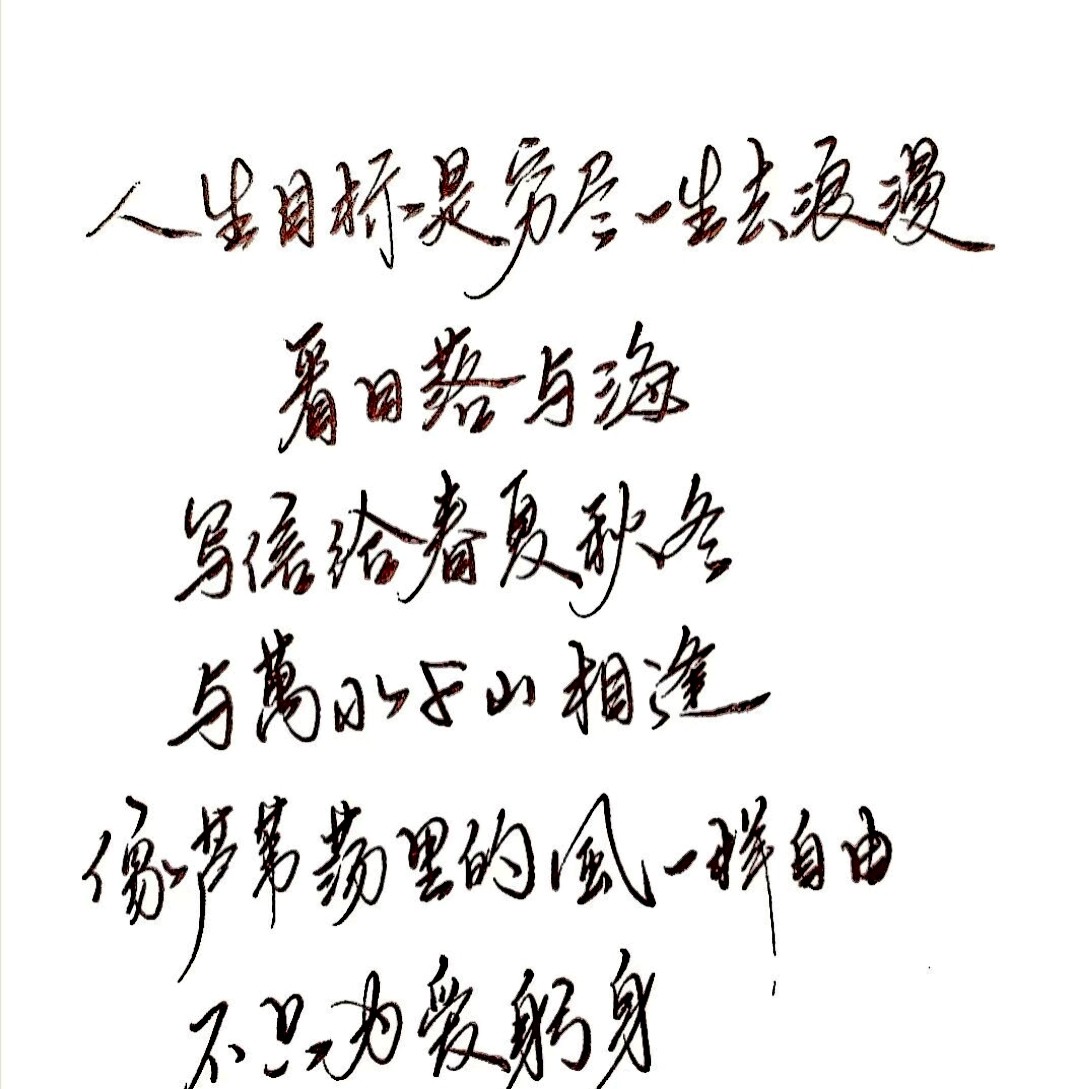 人生目标是穷尽一生去浪漫
看日落与海
写信给春夏秋冬
与萬水千山相逢
像芦苇荡里的風一样自由
不只为爱躬身